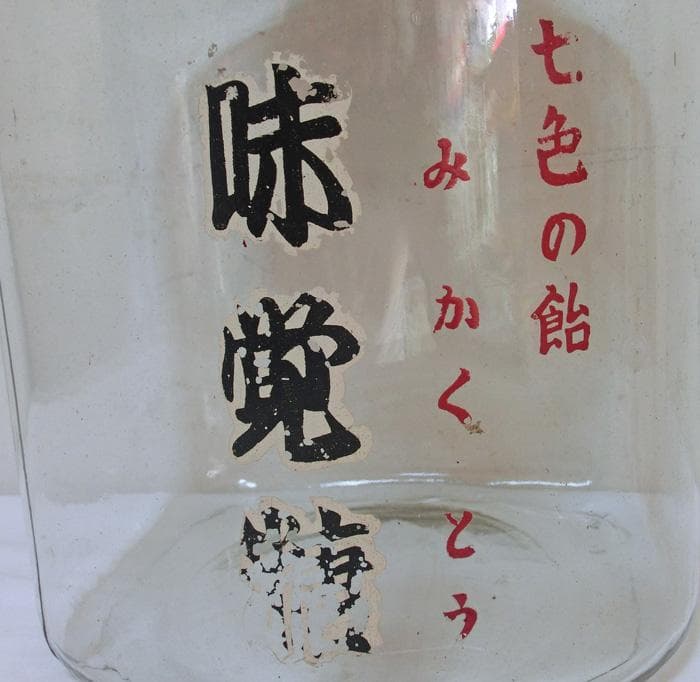 七色の飴
みかくとう
味覚糖